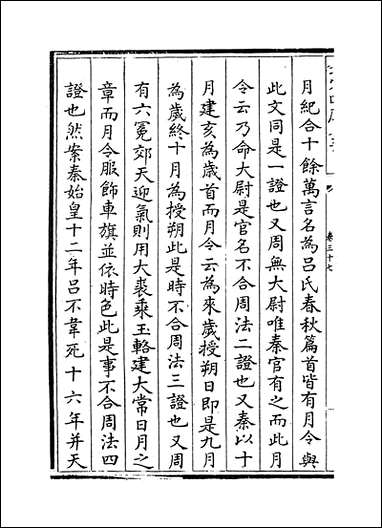 卷三十七
月紀合十餘萬言名為呂氏春秋篇首皆有月令與
此文同是一證也又周無大尉唯秦官有之而此月
令云乃命大尉是官名不合周法二證也又秦以十
月建亥為歲首而月令云為來歲授朔日即是九月
為歲終十月為授朔此是時不合周法三證也又周
有六冕郊天迎氣則用大裘乘玉輅建大常日月之
章而月令服飾車旗並依時色此是事不合周法四
證也然案秦始皇十二年呂不韋死十六年并天